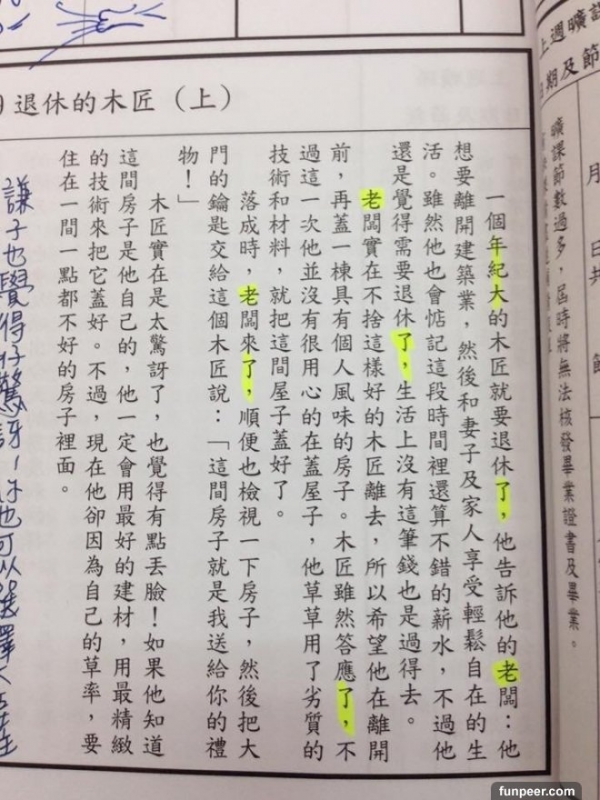 上週曠課
期及節
月 日共 節
曠課節數過多，屆時將無法核發畢業證書及畢業。
退休的木匠（上）
一個年紀大的木匠就要退休了，他告訴他的老闆：他
想要離開建築業，然後和妻子及家人享受輕鬆自在的生
活。雖然他也會惦記這段時間裡還算不錯的薪水，不過他
還是覺得需要退休了，生活上沒有這筆錢也是過得去。
老闆實在不捨這樣好的木匠離去，所以希望他在離開
前，再蓋一棟具有個人風味的房子。木匠雖然答應了，不
過這一次他並沒有很用心的在蓋屋子，他草草用了劣質的
技術和材料，就把這間屋子蓋好了。
落成時，老闆來了，順便也檢視一下房子，然後把大
門的鑰匙交給這個木匠說：「這間房子就是我送給你的禮
物！」
木匠實在是太驚訝了，也覺得有點丟臉！如果他知道
這間房子是他自己的，他一定會用最好的建材，用最精緻
的技術來把它蓋好。不過，現在他卻因為自己的草率，要
住在一間一點都不好的房子裡面。
也覺得好驚訝 也可以選擇
funpeer.com